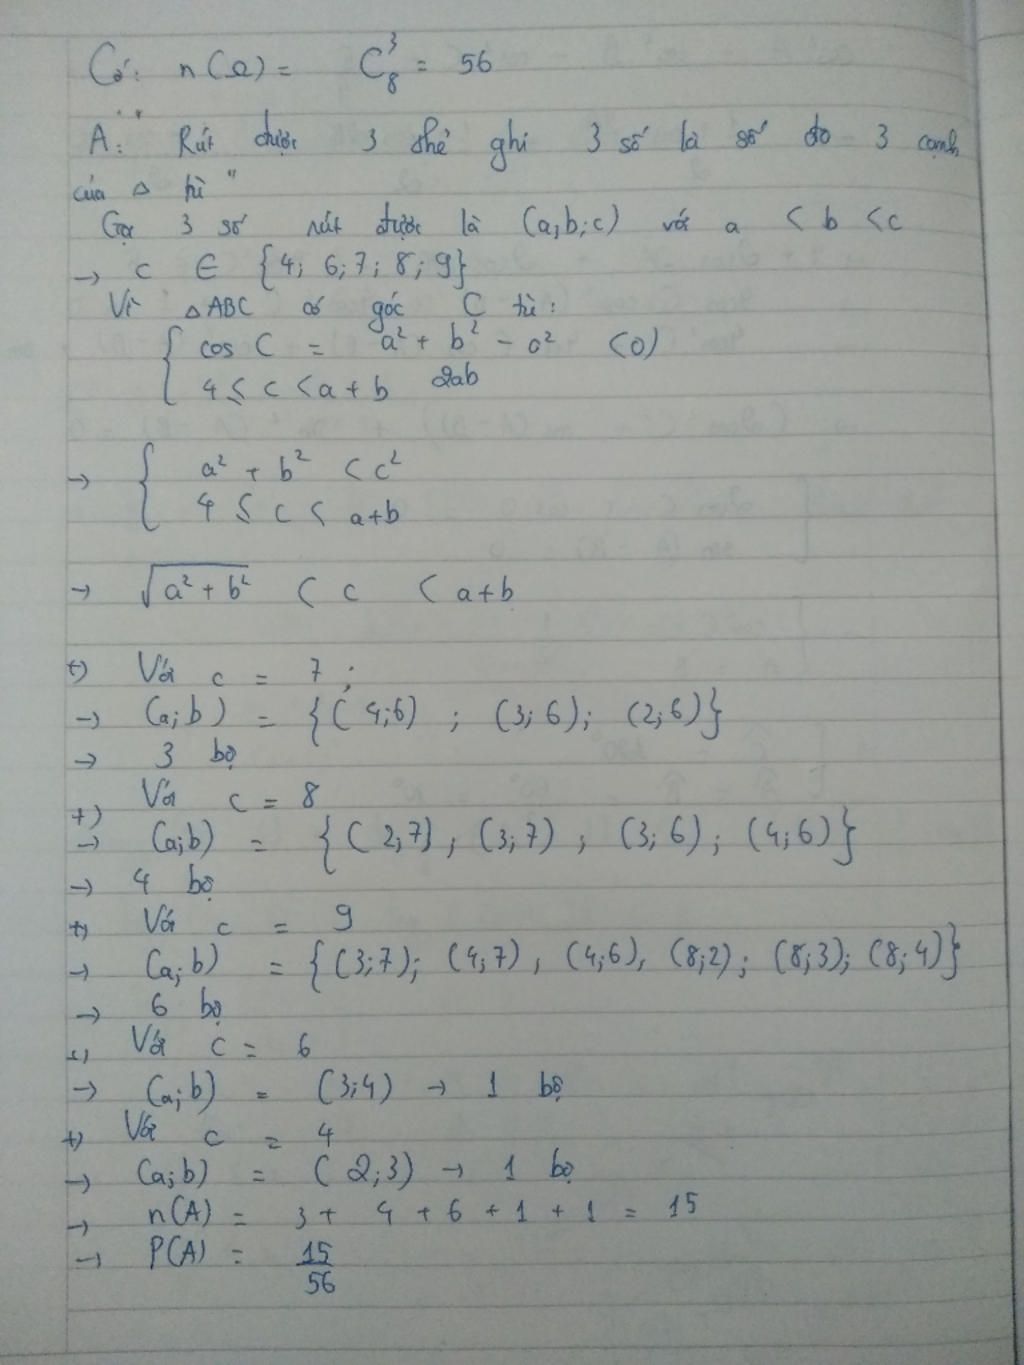 Có: n(Ω) = C₈³ = 56
A: " Rút được 3 thẻ ghi 3 số là số đo 3 cạnh
của Δ tù "
Gọi 3 số rút được là (a,b;c) với a < b < c
→ c ∈ {4; 6; 7; 8; 9}
Vì ΔABC có góc C tù:
{ cos C = (a² + b² - c²)/2ab (<0)
4 ≤ c < a + b
→ { a² + b² < c²
4 ≤ c < a+b
→ √(a² + b²) < c < a+b
+) Với c = 7 ;
→ (a;b) = {( 4;6) ; (3; 6); (2;6)}
→ 3 bộ
+) Với c = 8
→ (a;b) = {( 2,7) , (3;7) ; (3; 6) ; (4;6)}
→ 4 bộ
+) Với c = 9
→ (a;b) = {(3;7); (4;7) , (4;6), (8;2); (8;3); (8;4)}
→ 6 bộ
+) Với c = 6
→ (a;b) = (3;4) → 1 bộ
+) Với c = 4
→ (a;b) = ( 2;3) → 1 bộ
→ n(A) = 3 + 4 + 6 + 1 + 1 = 15
→ P(A) = 15/56